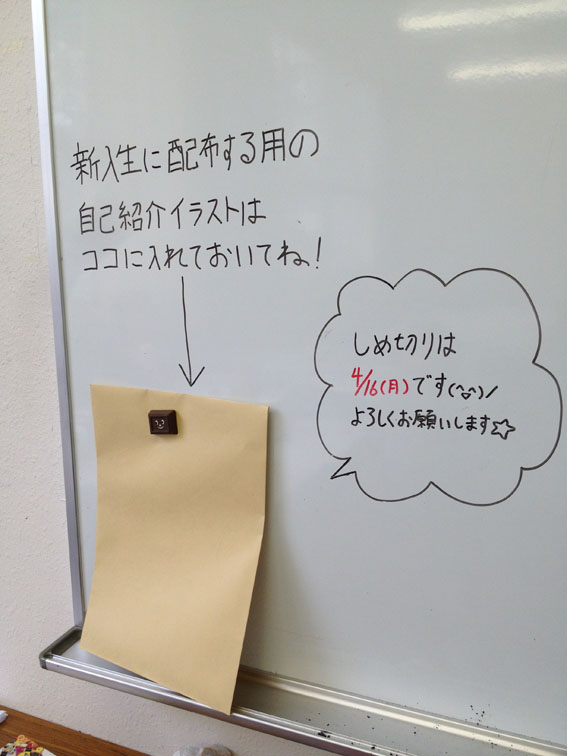 新入生に配布する用の
自己紹介イラストは
ココに入れておいてね!
しめ切りは
4/16(月)です(^^)/
よろしくお願いします☆